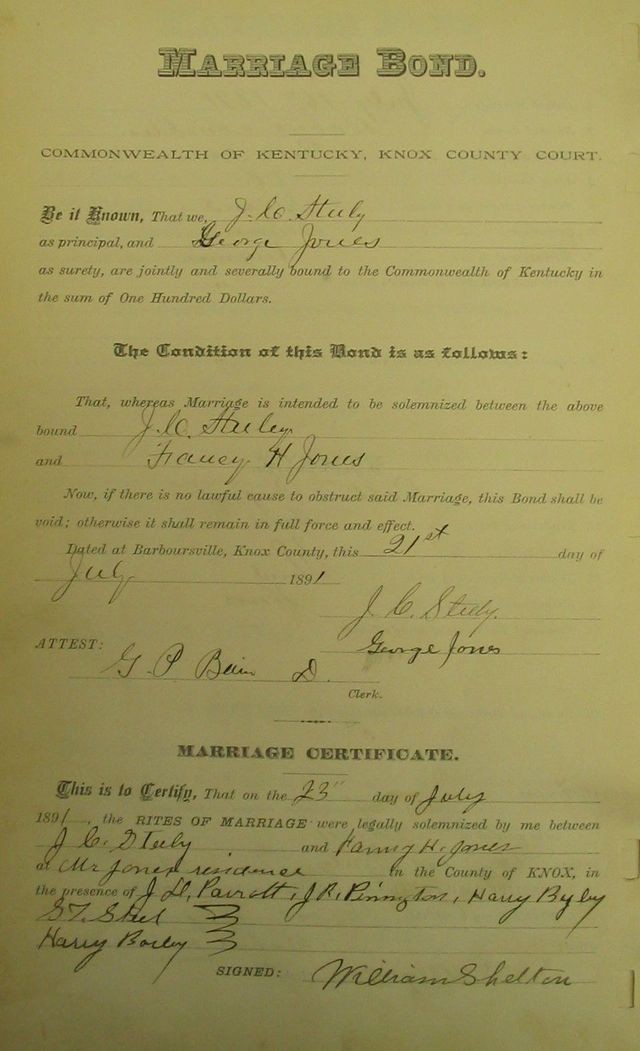 MARRIAGE BOND.
COMMONWEALTH OF KENTUCKY, KNOX COUNTY COURT.
Be it Known, That we, J. C. Steely
as principal, and George Jones
as surety, are jointly and severally bound to the Commonwealth of Kentucky in
the sum of One Hundred Dollars.
The Condition of this Bond is as follows:
That, whereas Marriage is intended to be solemnized between the above
bound J. C. Steely
and H Jones
Now, if there is no lawful cause to obstruct said Marriage, this Bond shall be
void; otherwise it shall remain in full force and effect.
Dated at Barboursville, Knox County, this 21st day of
July 1891
J. C. Steely.
George Jones
ATTEST:
G. P. D.
Clerk.
MARRIAGE CERTIFICATE.
This is to Certify, That on the 23" day of July
1891, the RITES OF MARRIAGE were legally solemnized by me between
J. C. Steely and H. Jones
at Mr Jones residence in the County of KNOX, in
the presence of J. D. Parrott, J. R. Pinnington, Harry Byley
Harry
SIGNED: William Shelton